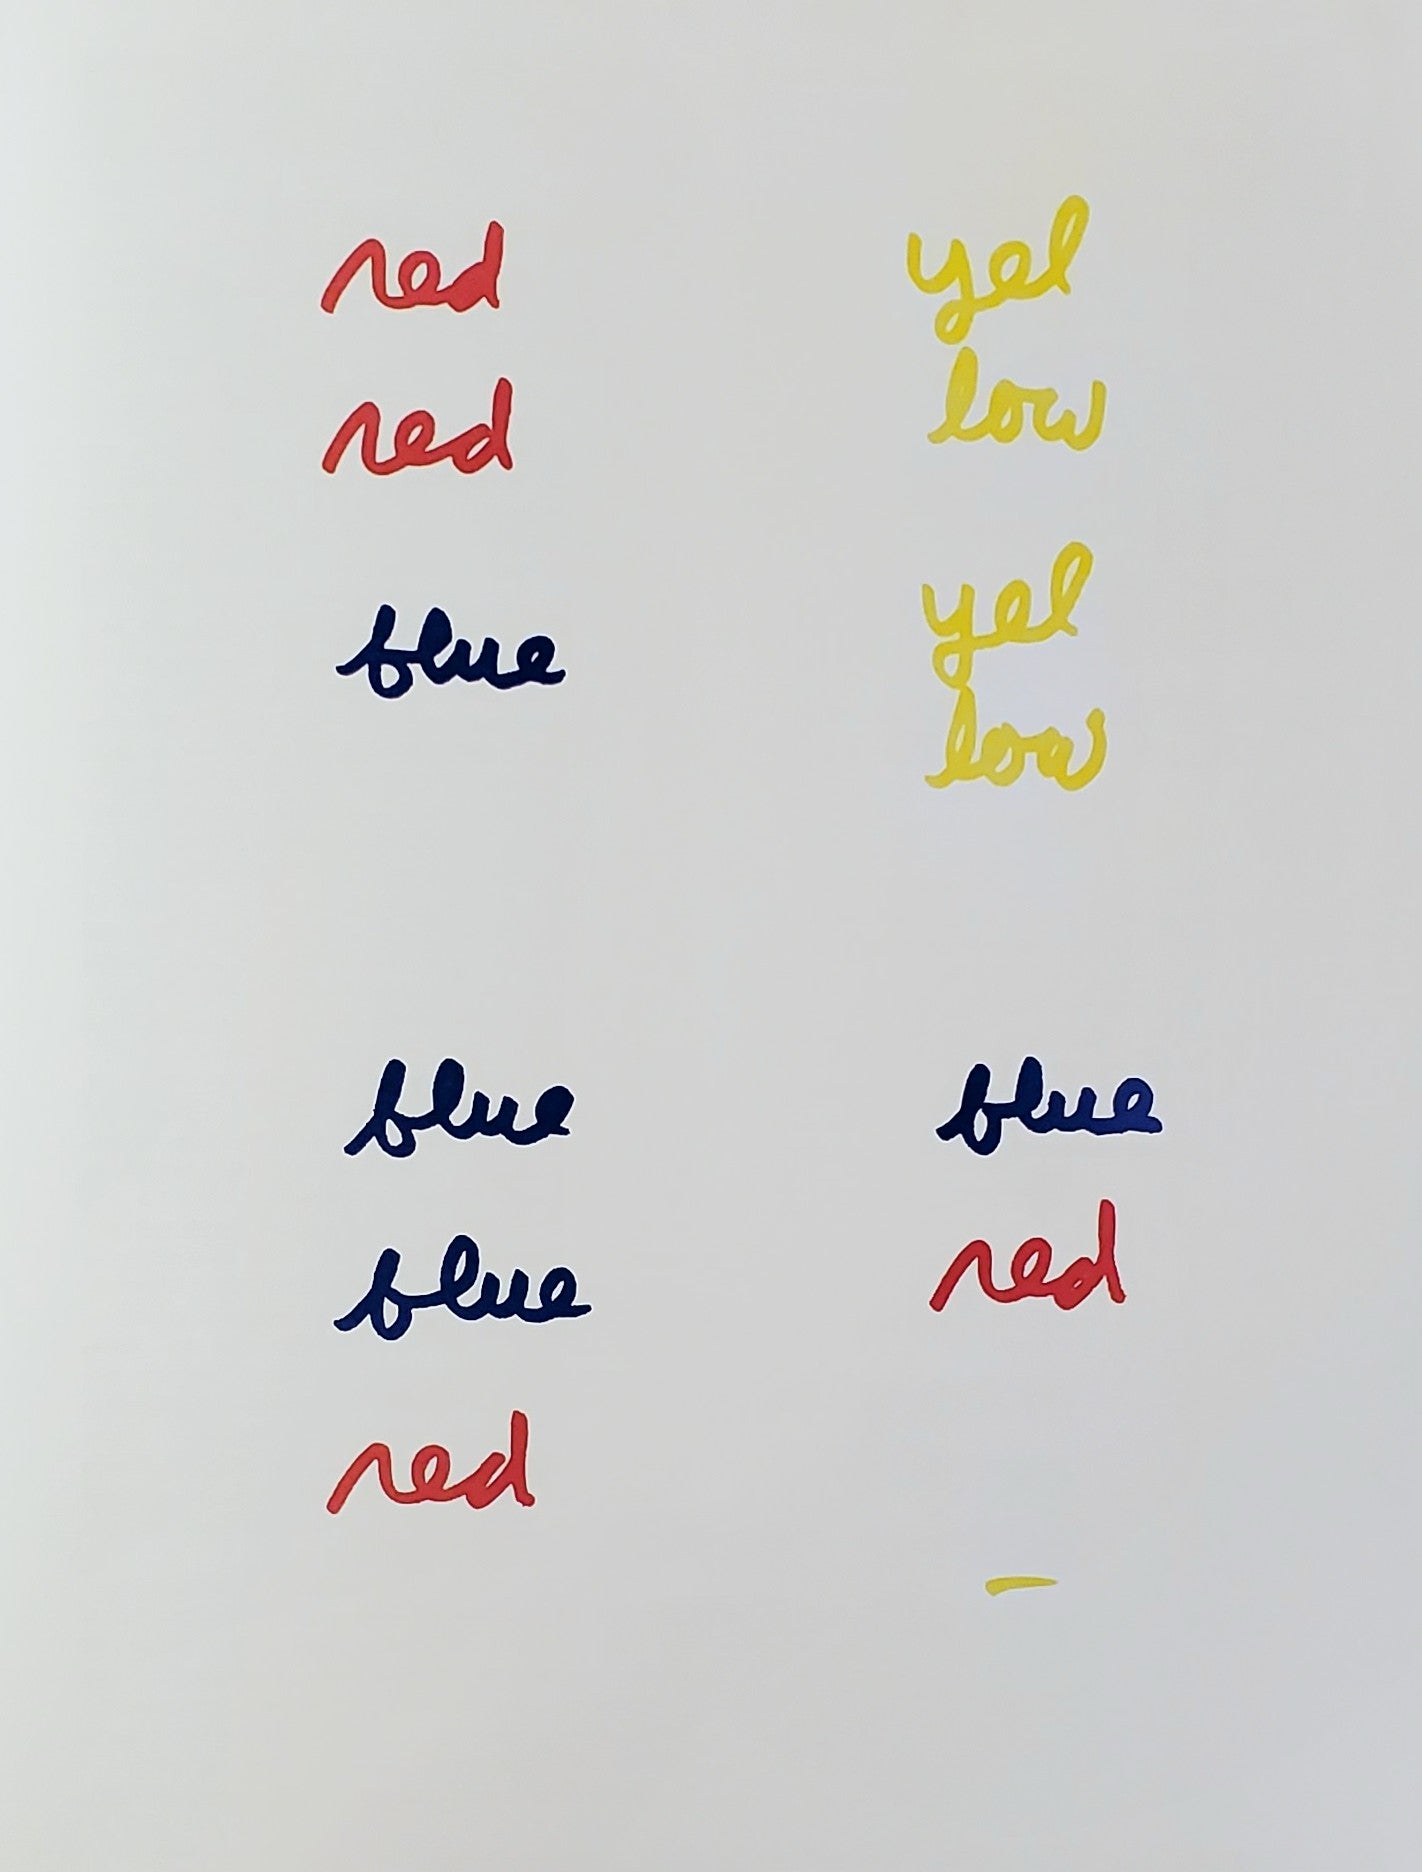 red
red
blue
blue
blue
red
yel
low
yel
low
blue
red